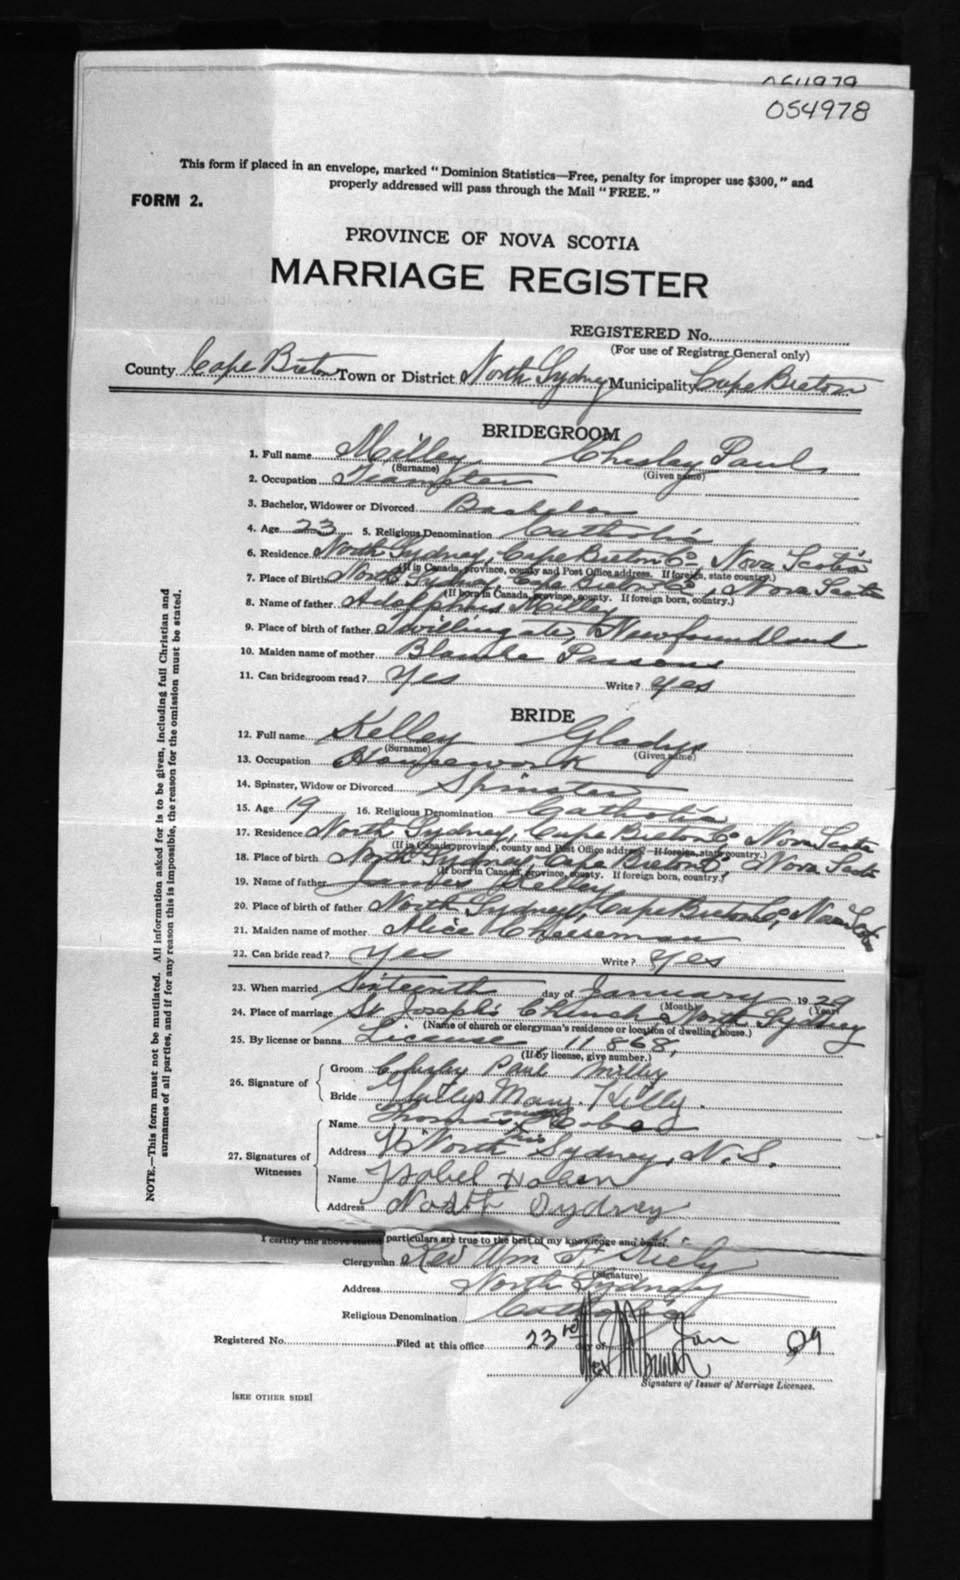 054979
054978
This form if placed in an envelope, marked "Dominion Statistics—Free, penalty for improper use $300," and
properly addressed will pass through the Mail "FREE."
FORM 2.
PROVINCE OF NOVA SCOTIA
MARRIAGE REGISTER
REGISTERED No.
(For use of Registrar General only)
County Cape Breton Town or District North Sydney Municipality Cape Breton
BRIDEGROOM
1. Full name Milley Chesley Paul
(Surname) (Given name)
2. Occupation Teamster
3. Bachelor, Widower or Divorced Bachelor
4. Age 23 5. Religious Denomination Catholic
6. Residence North Sydney, Cape Breton Co, Nova Scotia
(If in Canada, province, county and Post Office address. If foreign, state country.)
7. Place of Birth North Sydney Cape Breton Co, Nova Scotia
(If born in Canada, province, county. If foreign born, country.)
8. Name of father Adolphus Milley
9. Place of birth of father Twillingate, Newfoundland
10. Maiden name of mother Blanche Parsons
11. Can bridegroom read? Yes Write? yes
BRIDE
12. Full name Kelley Gladys
(Surname) (Given name)
13. Occupation Housework
14. Spinster, Widow or Divorced Spinster
15. Age 19 16. Religious Denomination Catholic
17. Residence North Sydney, Cape Breton Co Nova Scotia
(If in Canada, province, county and Post Office address. If foreign, state country.)
18. Place of birth North Sydney Cape Breton Co, Nova Scotia
(If born in Canada, province, county. If foreign born, country.)
19. Name of father James Kelley
20. Place of birth of father North Sydney, Cape Breton Co, Nova Scotia
21. Maiden name of mother Alice Cheeseman
22. Can bride read? Yes Write? Yes
23. When married Sixteenth day of January 1929
(Month) (Year)
24. Place of marriage St Joseph's Church North Sydney
(Name of church or clergyman's residence or location of dwelling house.)
25. By license or banns License, 11868,
(If by license, give number.)
26. Signature of Groom Chesley Paul Milley
Bride Gladys Mary Kelly.
27. Signatures of Witnesses
Name Thomas
Address North Sydney, N.S.
Name Isobel
Address North Sydney
I certify the above stated particulars are true to the best of my knowledge and belief.
Clergyman Rev Wm F. Kiely
(Signature)
Address North Sydney
Religious Denomination Catholic
Registered No. Filed at this office 23rd day of Jan 29
Signature of Issuer of Marriage Licenses.
[SEE OTHER SIDE]
NOTE.—This form must not be mutilated. All information asked for is to be given, including full Christian and
surnames of all parties, and if for any reason this is impossible, the reason for the omission must be stated.